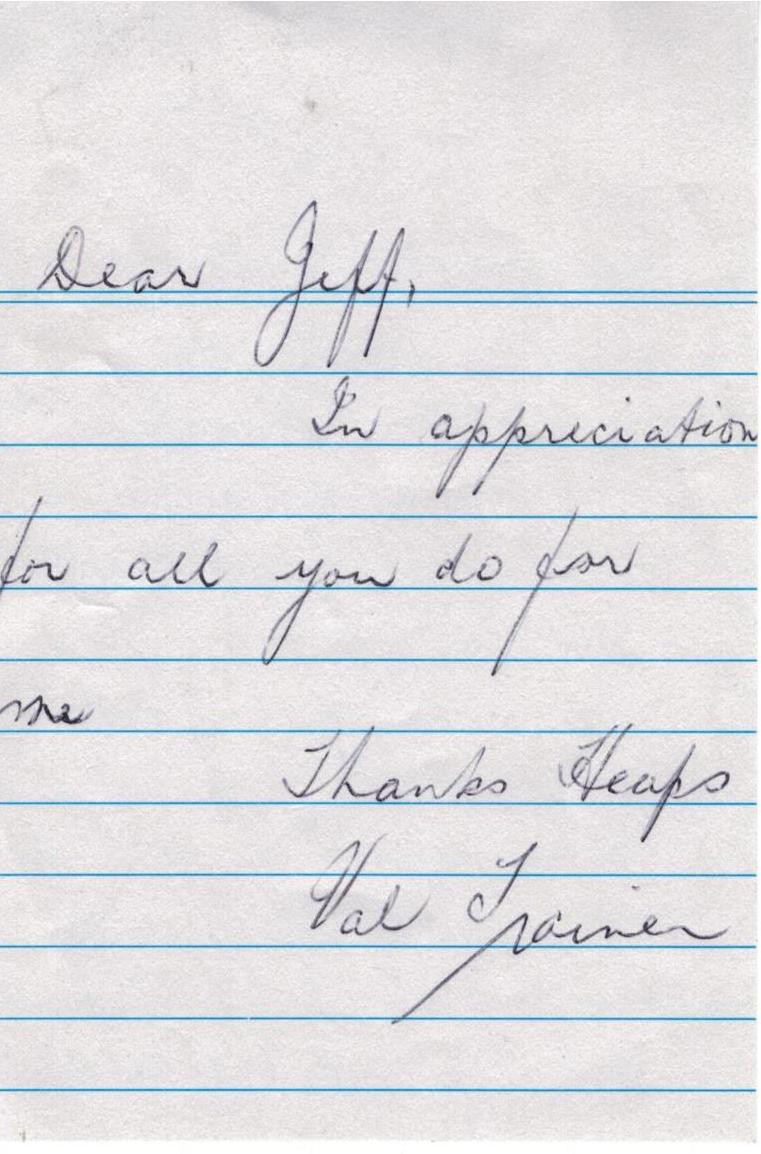 Dear Jeff,
In appreciation
for all you do for
me
Thanks Heaps
Val Trainer